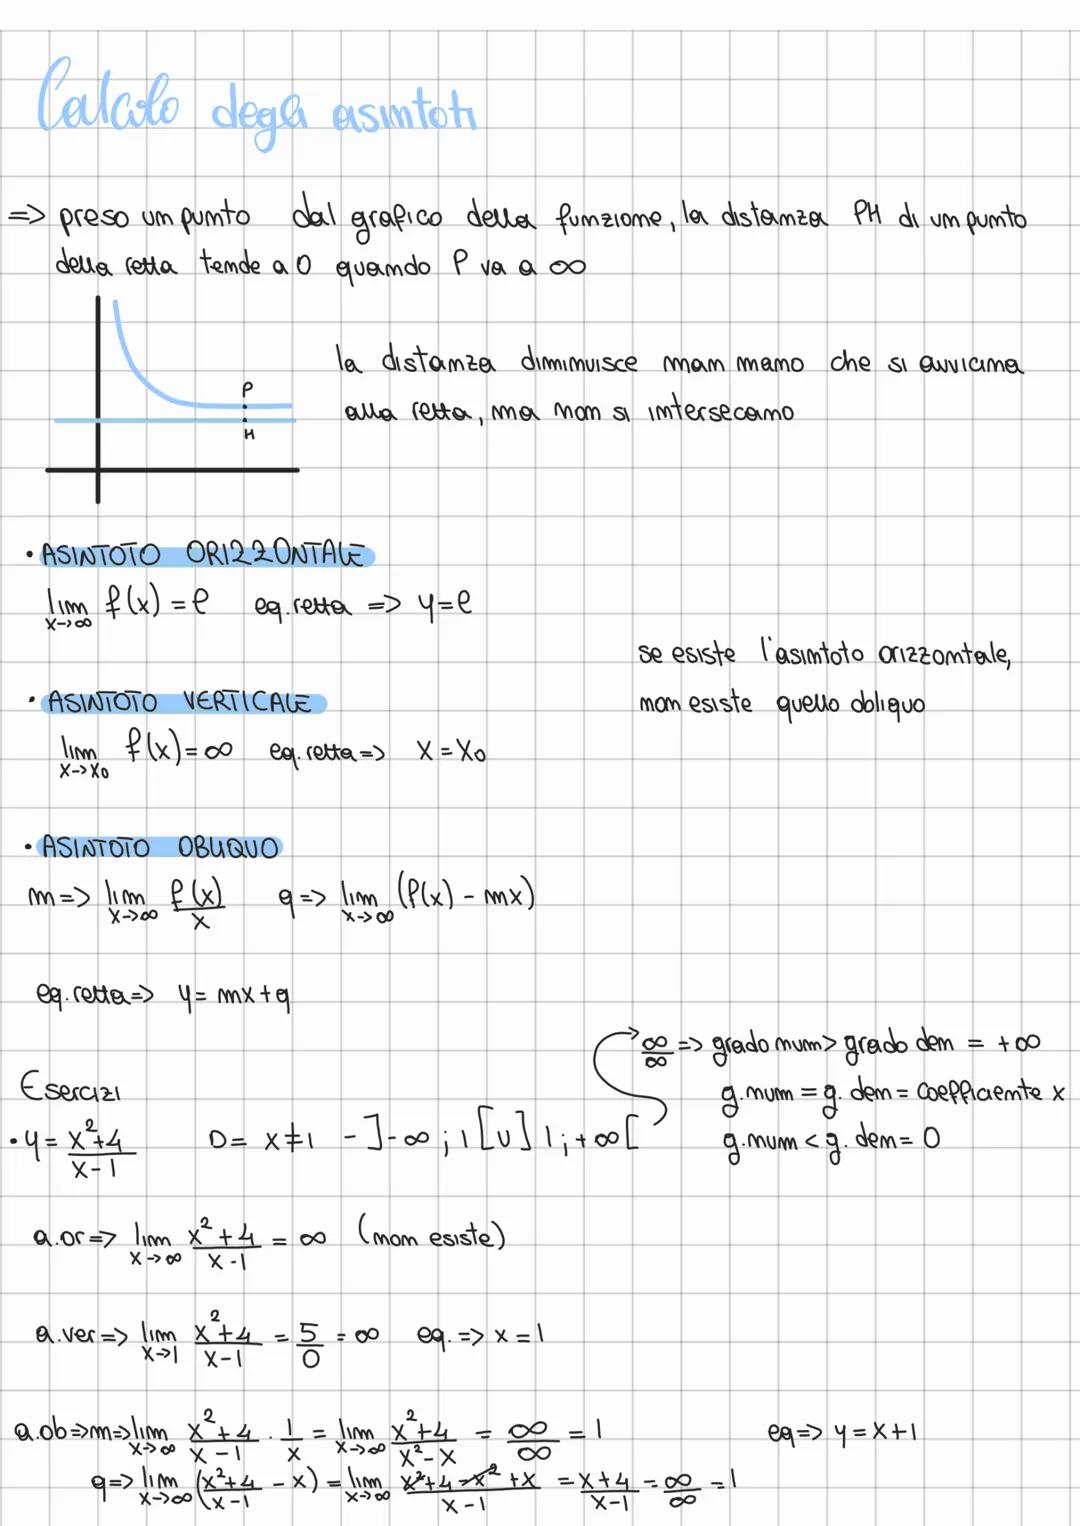 Calcolo degli asintoti
=> preso un punto dal grafico della funzione, la distanza PH di un punto
della retta tende a 0 quando P va a ∞
P
H
la distanza diminuisce man mano che si avvicina
alla retta, ma non si intersecano
• ASINTOTO ORIZZONTALE
lim x->∞ f(x) = l eq. retta => y=l
se esiste l'asintoto orizzontale,
non esiste quello obliquo
• ASINTOTO VERTICALE
lim x->x₀ f(x) = ∞ eq. retta => x = x₀
• ASINTOTO OBLIQUO
m => lim x->∞ f(x)/x q => lim x->∞ (f(x) - mx)
eq. retta => y = mx+q
∞/∞ => grado num > grado den = +∞
g. num = g. den = coefficiente x
g. num < g. den = 0
Esercizi
• y = x²+4/x-1 D = x≠1 - ]-∞; 1[ U ] 1; +∞[
a.or => lim x->∞ x²+4/x-1 = ∞ (non esiste)
a.ver => lim x->1 x²+4/x-1 = 5/0 = ∞ eq. => x = 1
a.ob => m => lim x->∞ x²+4/x-1 · 1/x = lim x->∞ x²+4/x²-x = ∞/∞ = 1 eq => y = x+1
q => lim x->∞ (x²+4/x-1 - x) = lim x->∞ x²+4-x²+x/x-1 = x+4/x-1 = ∞/∞ = 1